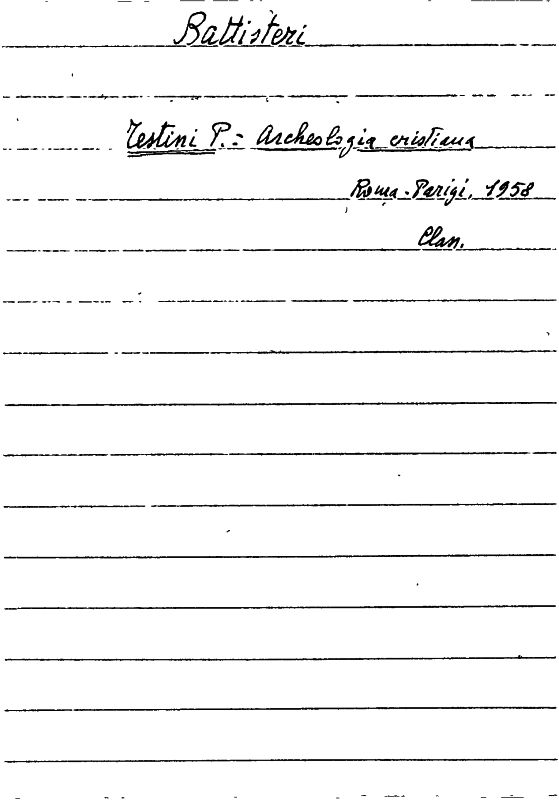 Battisteri
Testini P.: Archeologia cristiana
Roma-Parigi, 1958
Clan.